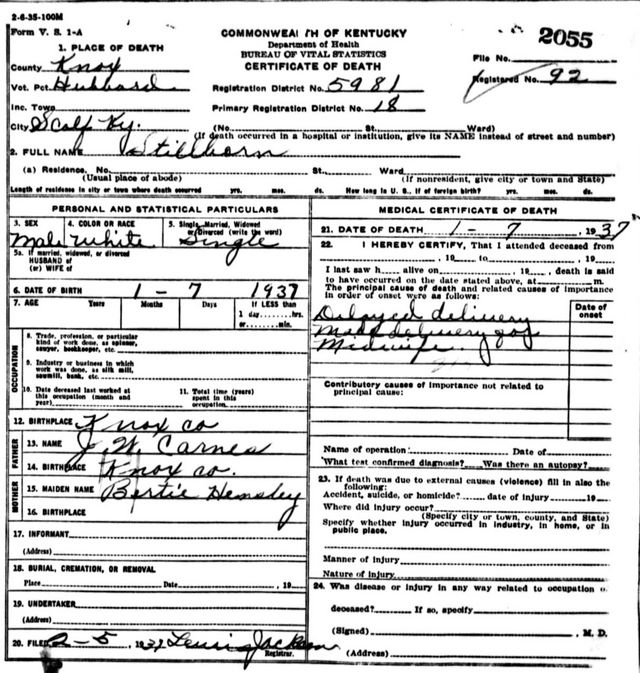 2-6-35-100M
Form V. S. 1-A
COMMONWEALTH OF KENTUCKY
Department of Health
BUREAU OF VITAL STATISTICS
CERTIFICATE OF DEATH
2055
File No.
Registered No. 92
1. PLACE OF DEATH
County Knox
Vot. Pct. Hubbard
Registration District No. 5981
Inc. Town
Primary Registration District No. 18
City Scalf Ky. (No. St. Ward)
(If death occurred in a hospital or institution, give its NAME instead of street and number)
2. FULL NAME Stillborn
(a) Residence, No. St., Ward
(Usual place of abode) (If nonresident, give city or town and State)
Length of residence in city or town where death occurred yrs. mos. ds. How long in U. S., if of foreign birth? yrs. mos. ds.
PERSONAL AND STATISTICAL PARTICULARS
3. SEX 4. COLOR OR RACE 5. Single, Married, Widowed or Divorced (write the word)
Male White Single
5a. If married, widowed, or divorced
HUSBAND of
(or) WIFE of
6. DATE OF BIRTH 1-7 1937
7. AGE Years Months Days If LESS than
1 day hrs.
or min.
OCCUPATION
8. Trade, profession, or particular
kind of work done, as spinner,
sawyer, bookkeeper, etc.
9. Industry or business in which
work was done, as silk mill,
sawmill, bank, etc.
10. Date deceased last worked at
this occupation (month and
year)
11. Total time (years)
spent in this
occupation
12. BIRTHPLACE Knox co
FATHER
13. NAME J. W. Carnes
14. BIRTHPLACE Knox co.
MOTHER
15. MAIDEN NAME Bertie Hensley
16. BIRTHPLACE
17. INFORMANT
(Address)
18. BURIAL, CREMATION, OR REMOVAL
Place Date , 19
19. UNDERTAKER
(Address)
20. FILED 2-5, 1937 Lewis Jackson
Registrar.
MEDICAL CERTIFICATE OF DEATH
21. DATE OF DEATH 1-7, 1937
22. I HEREBY CERTIFY, That I attended deceased from
, 19 to , 19
I last saw h alive on , 19 , death is said
to have occurred on the date stated above, at m.
The principal cause of death and related causes of importance
in order of onset were as follows:
Date of
onset
Delayed delivery
Midwife
Contributory causes of importance not related to
principal cause:
Name of operation Date of
What test confirmed diagnosis? Was there an autopsy?
23. If death was due to external causes (violence) fill in also the
following:
Accident, suicide, or homicide? date of injury 19
Where did injury occur?
(Specify city or town, county, and State)
Specify whether injury occurred in industry, in home, or in
public place.
Manner of injury
Nature of injury
24. Was disease or injury in any way related to occupation o
deceased? If so, specify
(Signed) , M. D.
(Address)